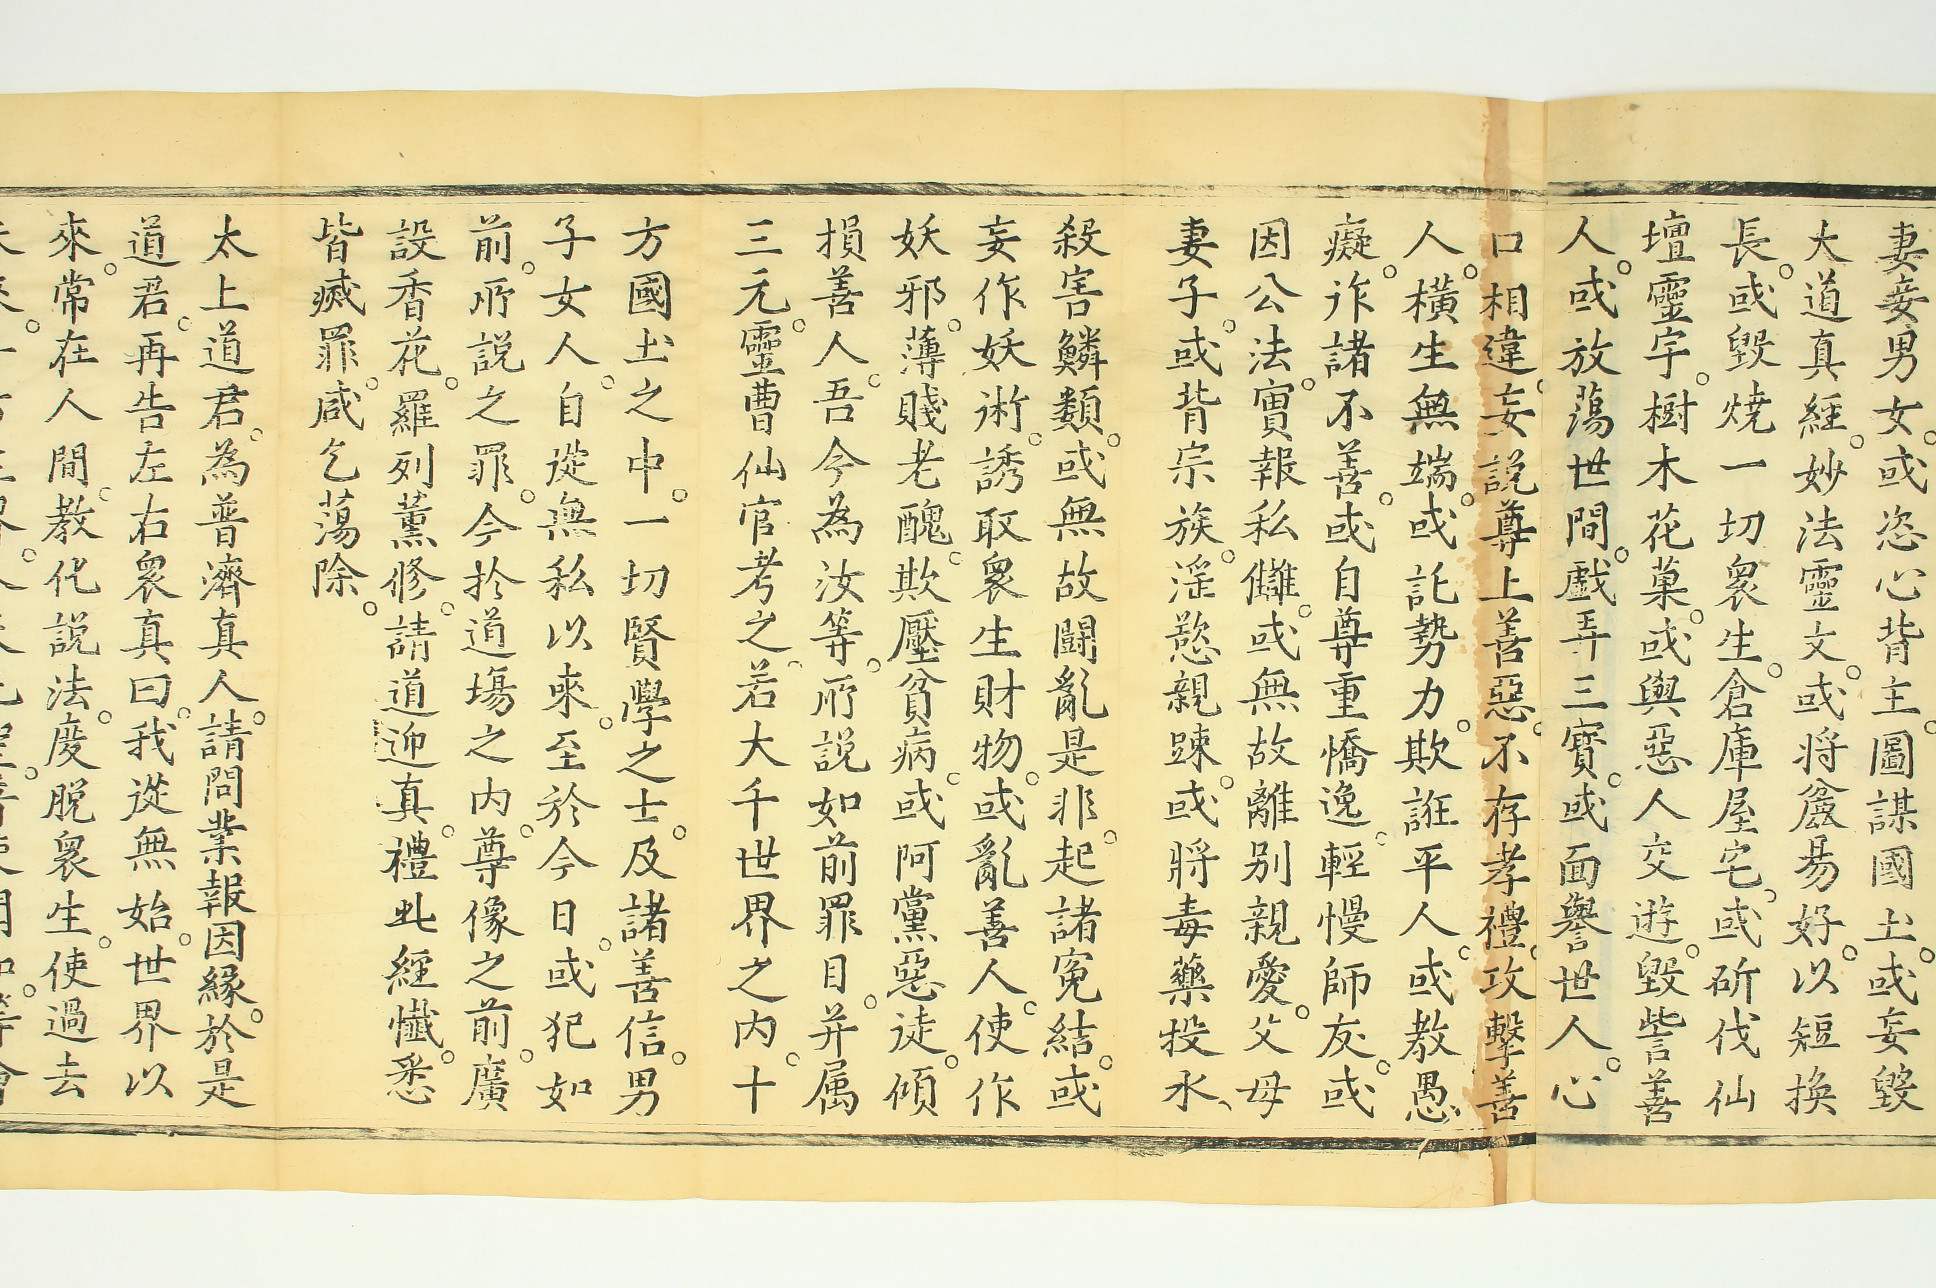 妻妾男女。或恣心背主。圖謀國土。或妄毀
大道真經。妙法靈文。或將麄易好。以短換
長。或毀燒一切衆生。倉庫屋宅。或斫伐仙
壇靈宇。樹木花菓。或與惡人交遊。毀訾善
人。或放蕩世間。戲弄三寶。或面譽世人。心
口相違。妄說尊上善惡。不存孝禮。攻擊善
人。橫生無端。或託勢力。欺誑平人。或教愚
癡。詐諸不善。或自尊重憍逸。輕慢師友。或
因公法。實報私讎。或無故離别親愛。父母
妻子。或背宗族。淫慾親踈。或將毒藥投水、
殺害鱗類。或無故鬪亂是非。起諸寃結。或
妄作妖術。誘取衆生財物。或亂善人。使作
妖邪。薄賤老醜。欺壓貧病。或阿黨惡徒。傾
損善人。吾今為汝等。所說如前罪目。并属
三元。靈曹仙官考之。若大千世界之内。十
方國土之中。一切賢學之士。及諸善信。男
子女人。自從無私以來。至於今日。或犯如
前。所說之罪。今於道場之内。尊像之前。廣
設香花。羅列薰修。請道迎真。禮此經懺。悉
皆滅罪。咸乞蕩除。
太上道君。為普濟真人。請問業報因緣。於是
道君。再告左右衆真曰。我從無始。世界以
來。常在人間。教化說法。度脱衆生。使過去